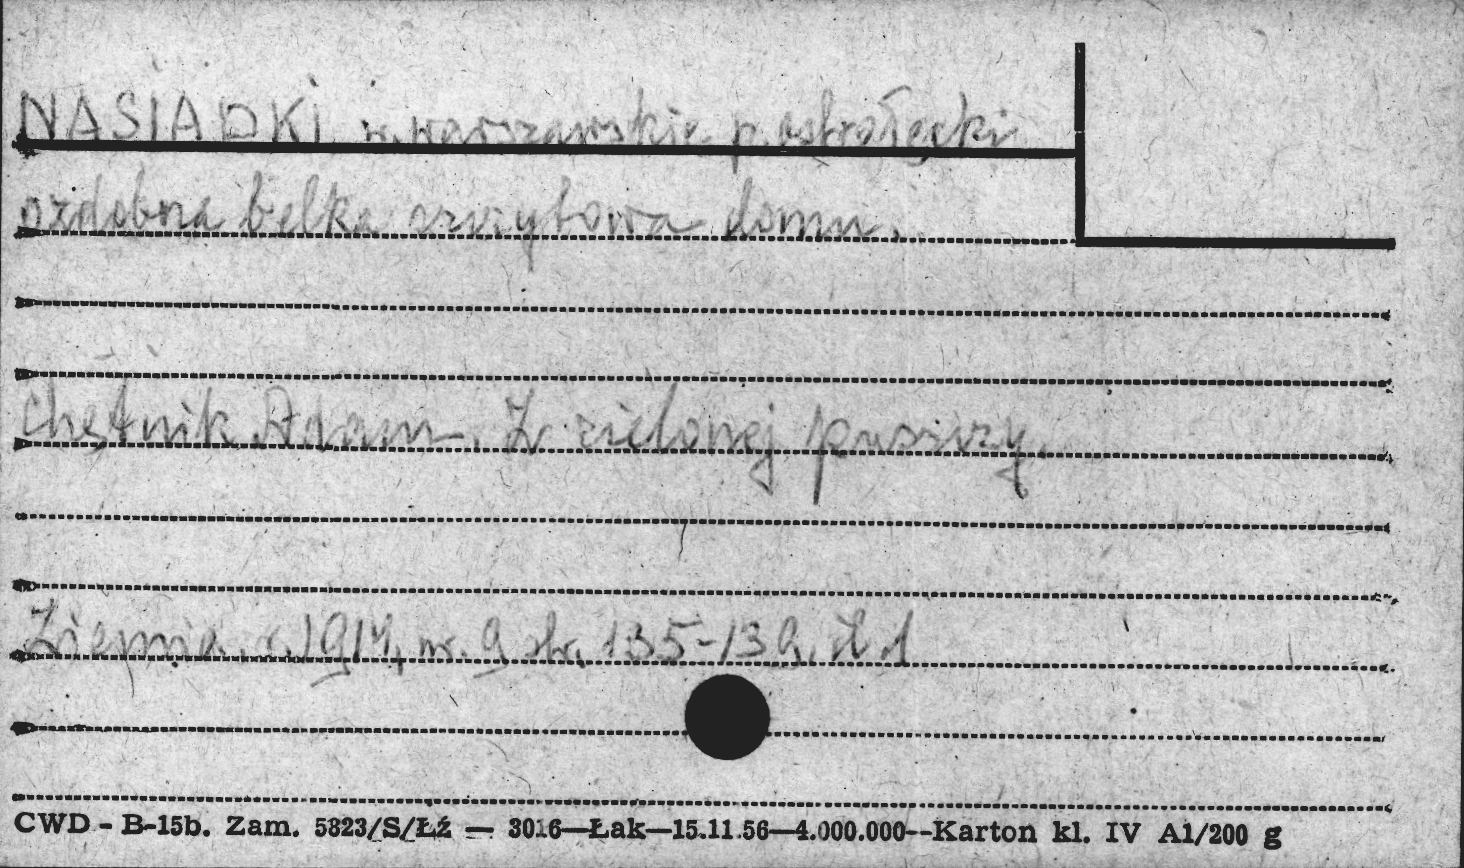 NASIADKI w. warszawskie p. ostrołęcki
ozdobna belka szczytowa domu.
Chętnik Adam. Z zielonej puszczy.
Ziemia. r. 1914, nr. 9 str. 135-139. il. 1
CWD - B-15b. Zam. 5823/S/Łź — 3016—Łak—15.11.56—4.000.000--Karton kl. IV A1/200 g